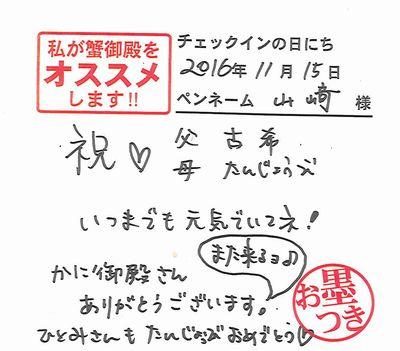 私が蟹御殿を
オススメ
します!!
チェックインの日にち
2016年 11月 15日
ペンネーム 山崎 様
祝♡ 父 古希
母 たんじょうび
いつまでも元気でいてネ!
また来るョ♪
かに御殿さん
ありがとうございます。
ひとみさんも たんじょうび おめでとう♡
墨
おつき